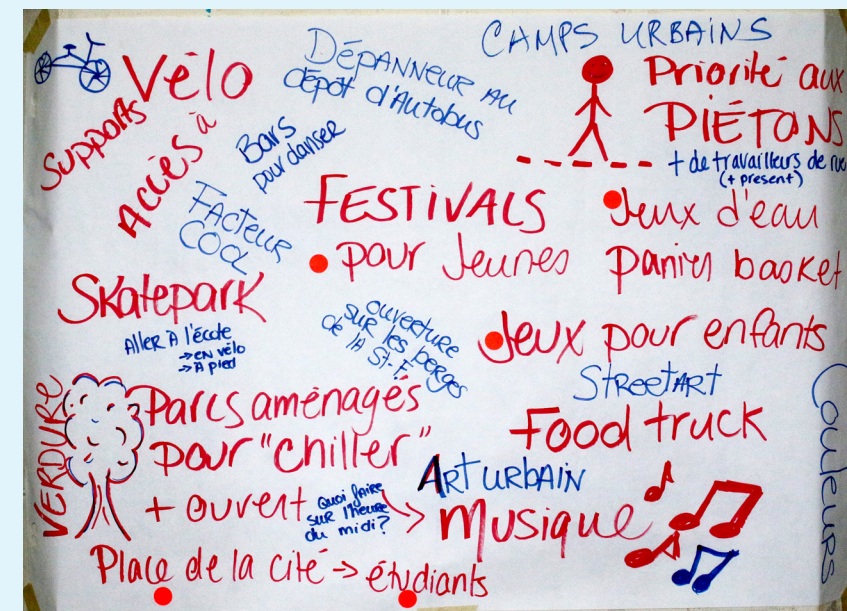 Vélo
Supports
Accès à
DÉPANNEUR AU
dépôt d'Autobus
CAMPS URBAINS
Bars
pour danser
Priorité aux
PIÉTONS
+ de travailleurs de rue
(+ présent)
FACTEUR
COOL
FESTIVALS
pour Jeunes
Jeux d'eau
Paniers basket
Skatepark
Aller à l'école
→ en vélo
→ À pied
ouverture
sur les berges
de la St-F.
Jeux pour enfants
STREETART
Food truck
COULEURS
VERDURE
Parcs aménagés
pour "chiller"
+ ouvert
Quoi faire
sur l'heure
du midi?
ART URBAIN
Musique
Place de la cité → étudiants